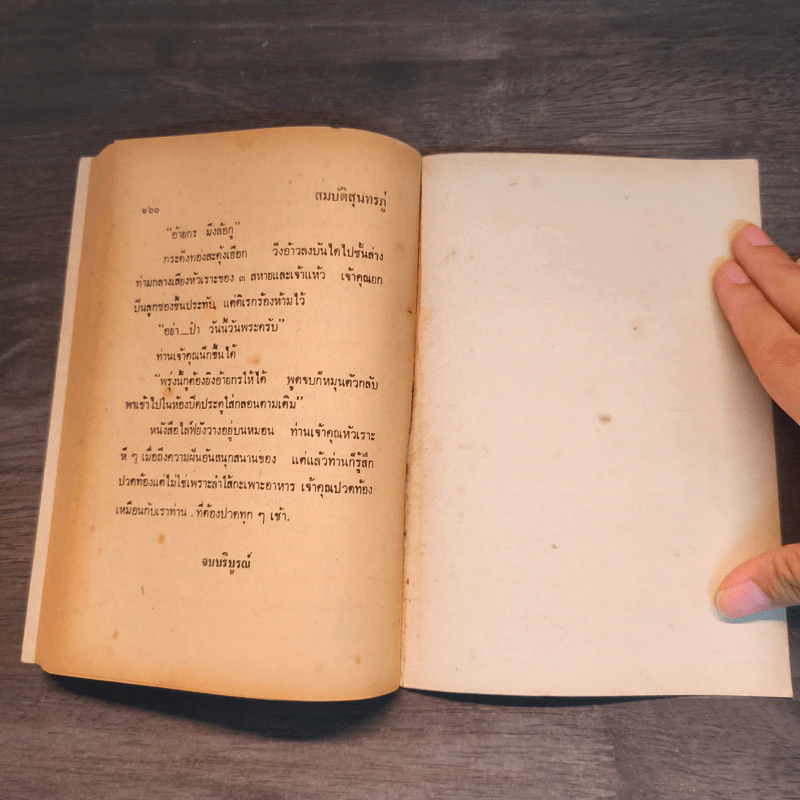 ๑๖๐
สมบัติสุนทรภู่
"อ้ายกร มึงล้อกู"
กระดึงทองสะดุ้งเฮือก วิ่งอ้าวลงบันไดไปชั้นล่าง
ท่ามกลางเสียงหัวเราะของ ๓ สหายและเจ้าแห้ว เจ้าคุณยก
ปืนลูกซองขึ้นประทับ แต่ดิเรกร้องห้ามไว้
"อย่า....ป๋า วันนี้วันพระครับ"
ท่านเจ้าคุณนึกขึ้นได้
"พรุ่งนี้กูต้องยิงอ้ายกรให้ได้ พูดจบก็หมุนตัวกลับ
พาเข้าไปในห้องปิดประตูใส่กลอนตามเดิม"
หนังสือไลฟ์ยังวางอยู่บนหมอน ท่านเจ้าคุณหัวเราะ
หึ ๆ เมื่อถึงความฝันอันสนุกสนานของ แต่แล้วท่านก็รู้สึก
ปวดท้องแต่ไม่ใช่เพราะลำไส้กะเพาะอาหาร เจ้าคุณปวดท้อง
เหมือนกับเราท่าน . ที่ต้องปวดทุก ๆ เช้า.
จบบริบูรณ์